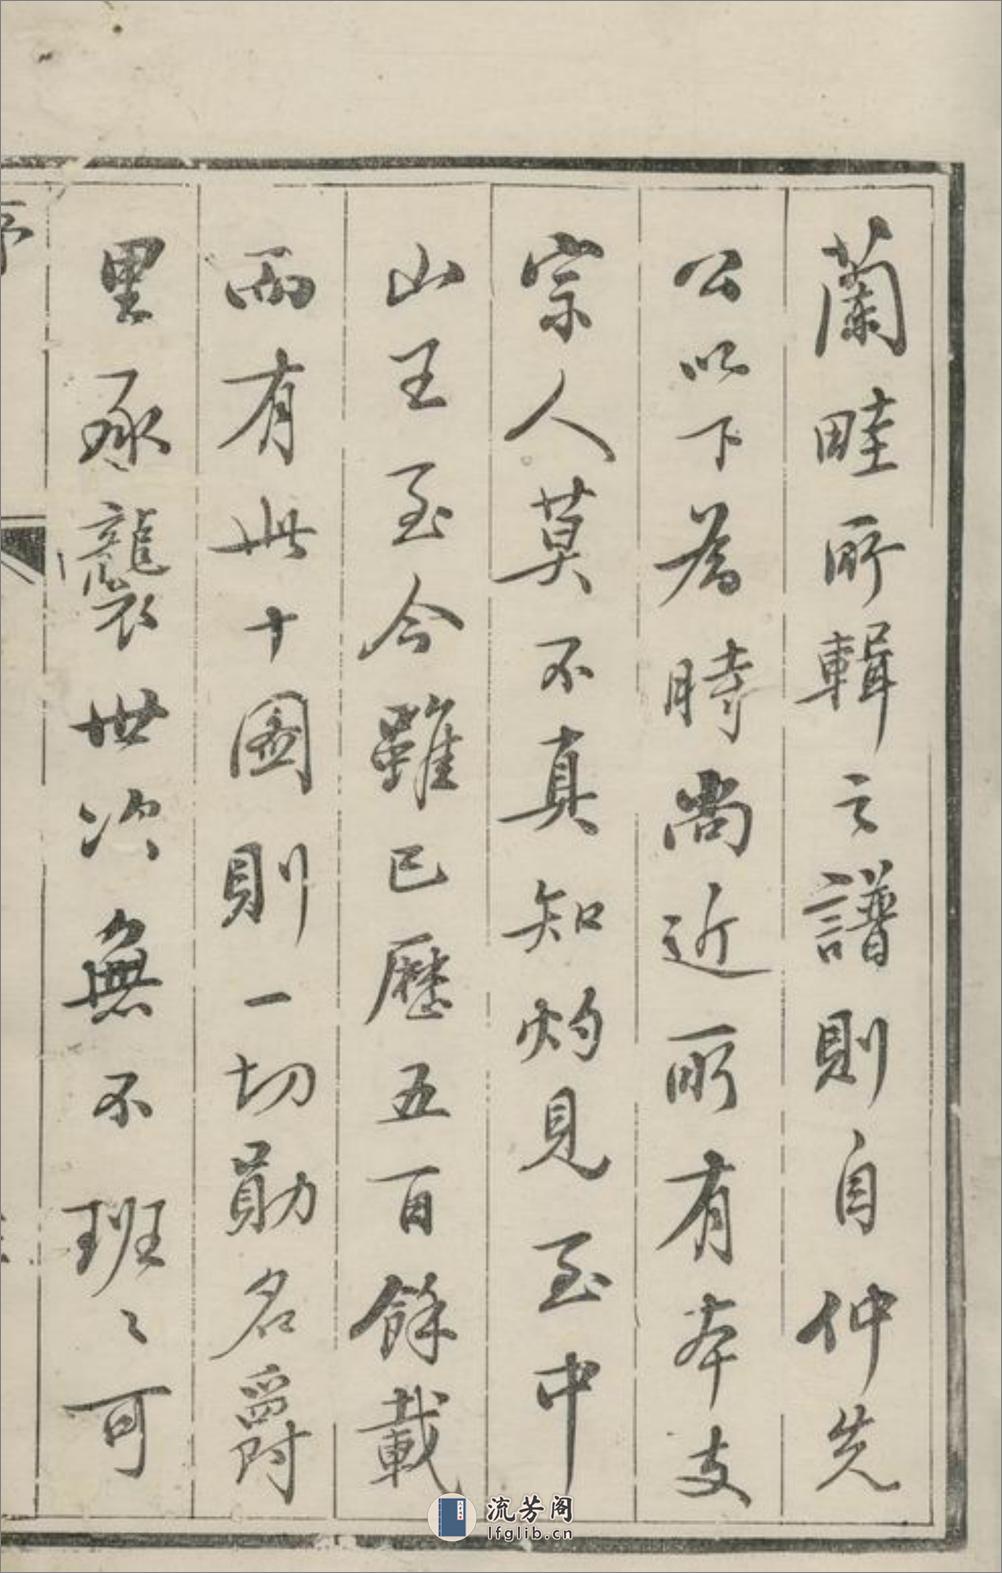 蘭畦所輯之譜則自仲先
公以下為時尚近所有本支
宗人莫不真知灼見至中
山王至今雖已歷五百餘載
而有此十圖則一切勛名爵
里承襲世次無不班〻可
序
流芳阁
lfglib.cn